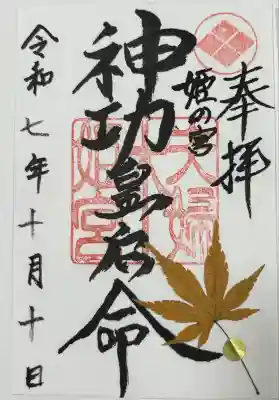 奉拝
姫の宮
神功皇后命
夫婦
姫宮
令和七年十月十日